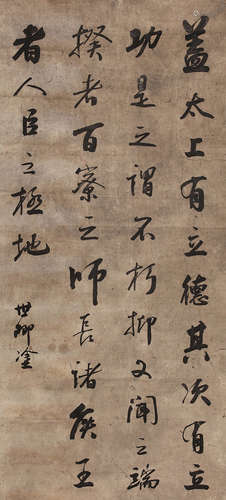 蓋太上有立德其次有立
功是之謂不朽抑又聞之端
揆者百寮之師長諸侯王
者人臣之極地
世卿塗